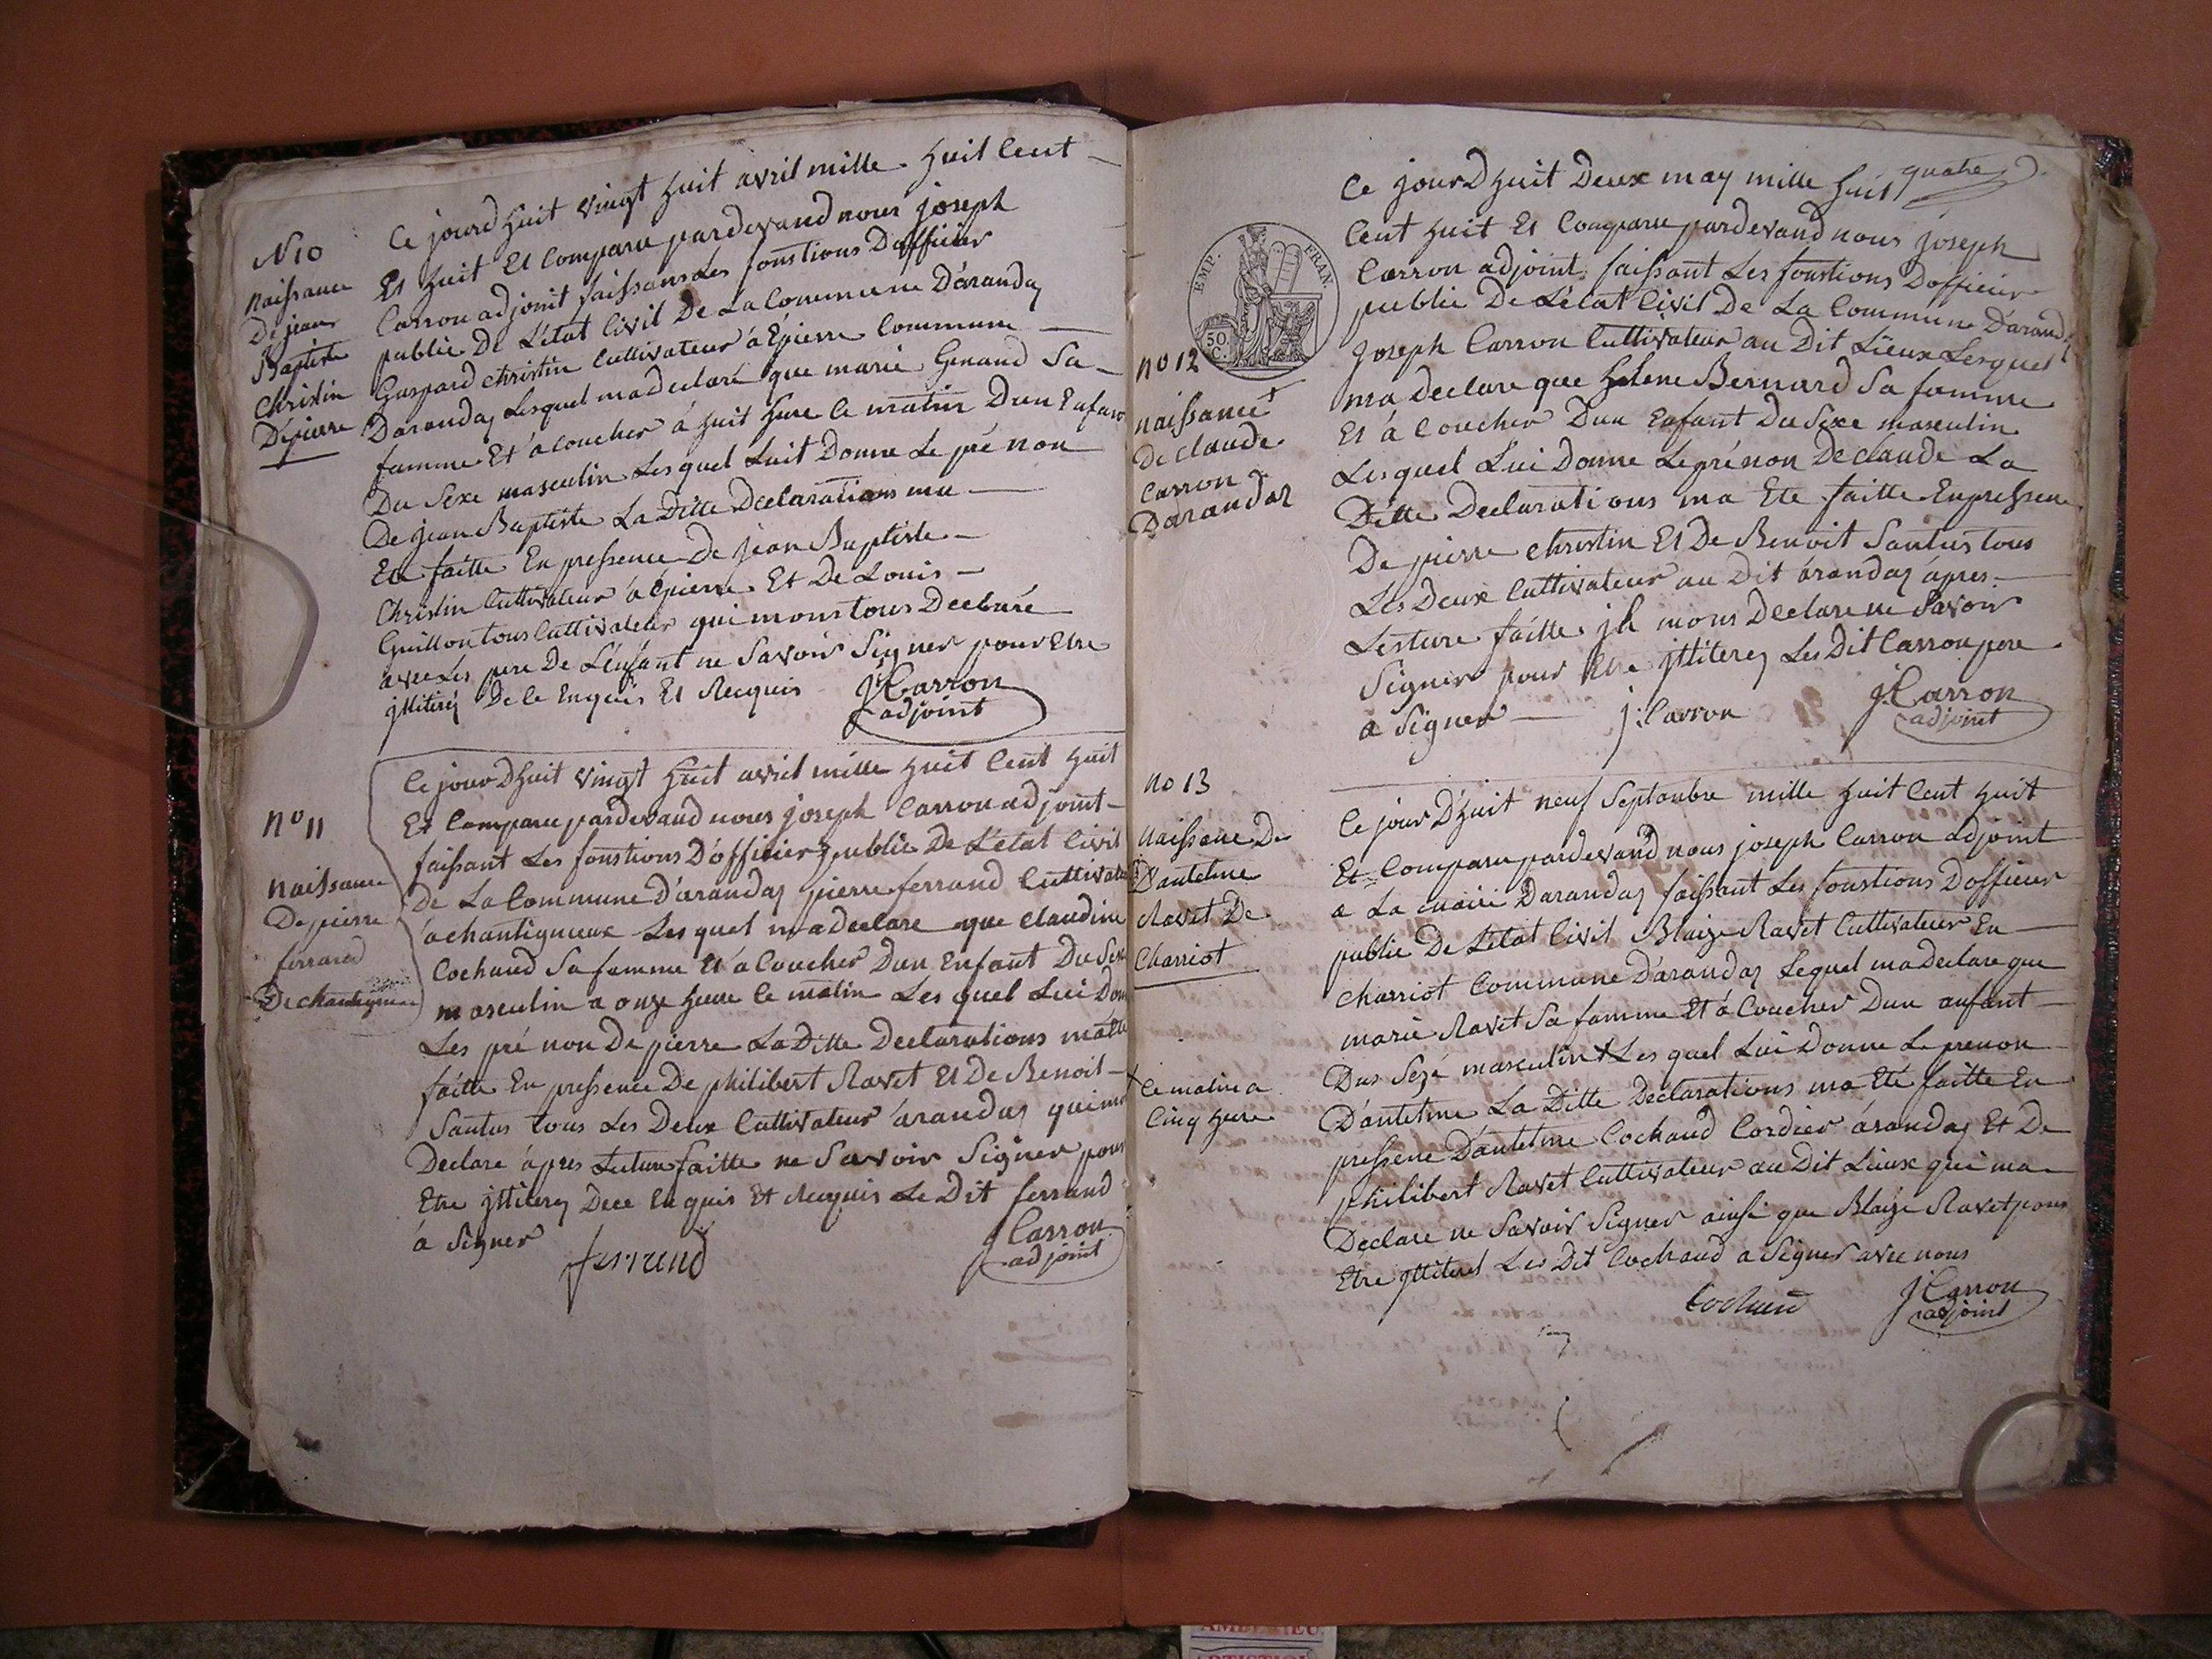 N 10
naissance
De jean
Baptiste
Christin
D'épierre
Ce jourd huit vingt huit avril mille huit Cent
Et huit Et Comparu pardevand nous joseph
Carron adjoint faissans Les fonstions D'officier
public De L'état Civil De La Commune D'aranday
Gaspard christin Cultivateur à Épierre Commune
Daranday Lesquel ma declaré que marie Genand Sa
famme Et à coucher à huit hure le matin Dun Enfant
Du Sexe masculin Lesquel Luit Donne Le pré non
De jean Baptiste La Ditte Déclarations ma
Ete faitte En pressence De jean Baptiste
Christin Cultivateur à Épierre Et De Louis
Guillon tous Cultivateur qui mons tous Declaré
avec Les pere De L'enfant ne Savoir Signer pour Etre
jttiterés De Ce Enquis Et Requis
J Carron
adjoint
n° 11
naissance
De pierre
ferrand
De chantigneux
Ce jour Dhuit vingt huit avril mille huit Cent huit
Et Comparu pardevand nous joseph Carron adjoint
faissant Les fonstions D'officier public De L'état Civil
De La Commune D'aranday pierre ferrand Cultivate
à chantigneux Lesquel ma declare que Claudine
Cochaud Sa famme Et à Coucher Dun Enfant Du Sexe
masculin a onze heure Le matin Les quel Lui Don
Les pré non De pierre La Ditte Declarations ma Ete
faitte En pressence De philibert Ravet Et De Benoit
Santus tous Les Deux Cultivateur àranday qui m
Declare àpres Lecture faitte ne Savoir Signer pour
Etre jttiterez Dece Enquis Et Requis Le Dit ferrand
à Signer
ferrand
J Carron
adjoint
quatre
EMP. FRAN.
50.
C.
no 12
naissance
De claude
Carron
Daranday
Ce jourDhuit Deux may mille huit
Cent huit Et Comparu pardevand nous joseph
Carron adjoint faissant Les fonstions Dofficier
public De L'état Civil De La Commune D'arand
joseph Carron Cultivateur au Dit Lieux Lesquel
ma declare que helene Bernard Sa famme
Et à Coucher Dun Enfant Du Sexe masculin
Lesquel Lui Donne Le prénon De claude La
Ditte Declarations ma Ete faitte En pressence
De pierre christin Et De Benoit Santus tous
Les Deux Cultivateur au Dit àranday àpres
Lesture faitte jl mons Declare ne Savoir
Signer pour Etre jttiterez Les Dit Carron pere
a Signer
j: Carron
J Carron
adjoint
no 13
naissene De
D'antelme
Ravet De
Charriot
Ce matin a
Cinq heure
Ce jour D'huit neuf Septanbre mille huit Cent huit
Et Comparu pardevand nous joseph Carron adjoint
a La mairi Daranday faissant Les fonstions Dofficier
public De L'état Civil Blaize Ravet Cultivateur En
charriot Commune D'aranday Lequel ma Declare que
marie Ravet Sa famme Et à Coucher Dun anfant
Dus Sexe masculin Les quel Lui Donne Le prenon
D'antelme La Ditte Declarations ma Eté faitte En
pressene D'antelme Cochaud Cordier àranday Et De
philibert Ravet Cultivateur au Dit Lieux qui ma
Declare ne Savoir Signer ainsi que Blaize Ravet pour
Etre jttiterez Les Dit Cochaud a Signer avec nous
Cochaud
J Carron
adjoint